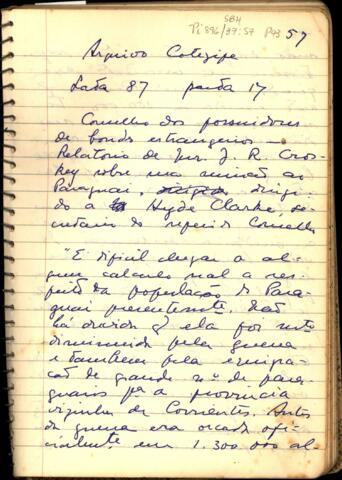 SBH
Pi 896/37:57 P93
57
Arquivo Cotegipe
Lata 87 pasta 17
Conselho dos possuidores
de bonds estrangeiros —
Relatorio de Mr. J. R. Cros-
key sobre uma missão ao
Paraguai, dirigi-
do a Hyde Clarke, se-
cretario do referido Conselho
"É dificil chegar a al-
gum calculo real a res-
peito da população do Para-
guai presentemente. Não
há duvida q ela foi mto
diminuida pela guerra
e tambem pela emigra-
ção de grande nº de para-
guaios pa a provincia
vizinha de Corrientes. Antes
da guerra era orçada ofi-
cialmente em 1.300.000 al-